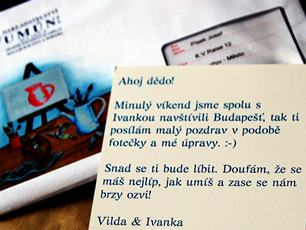 UMÚN
K.V Raise 12
- Město
Ahoj dědo!
Minulý víkend jsme spolu s
Ivankou navštívili Budapešť, tak ti
posílám malý pozdrav v podobě
fotečky a mé úpravy. :-)
Snad se ti bude líbit. Doufám, že se
máš nejlíp, jak umíš a zase se nám
brzy ozvi!
Vilda & Ivanka